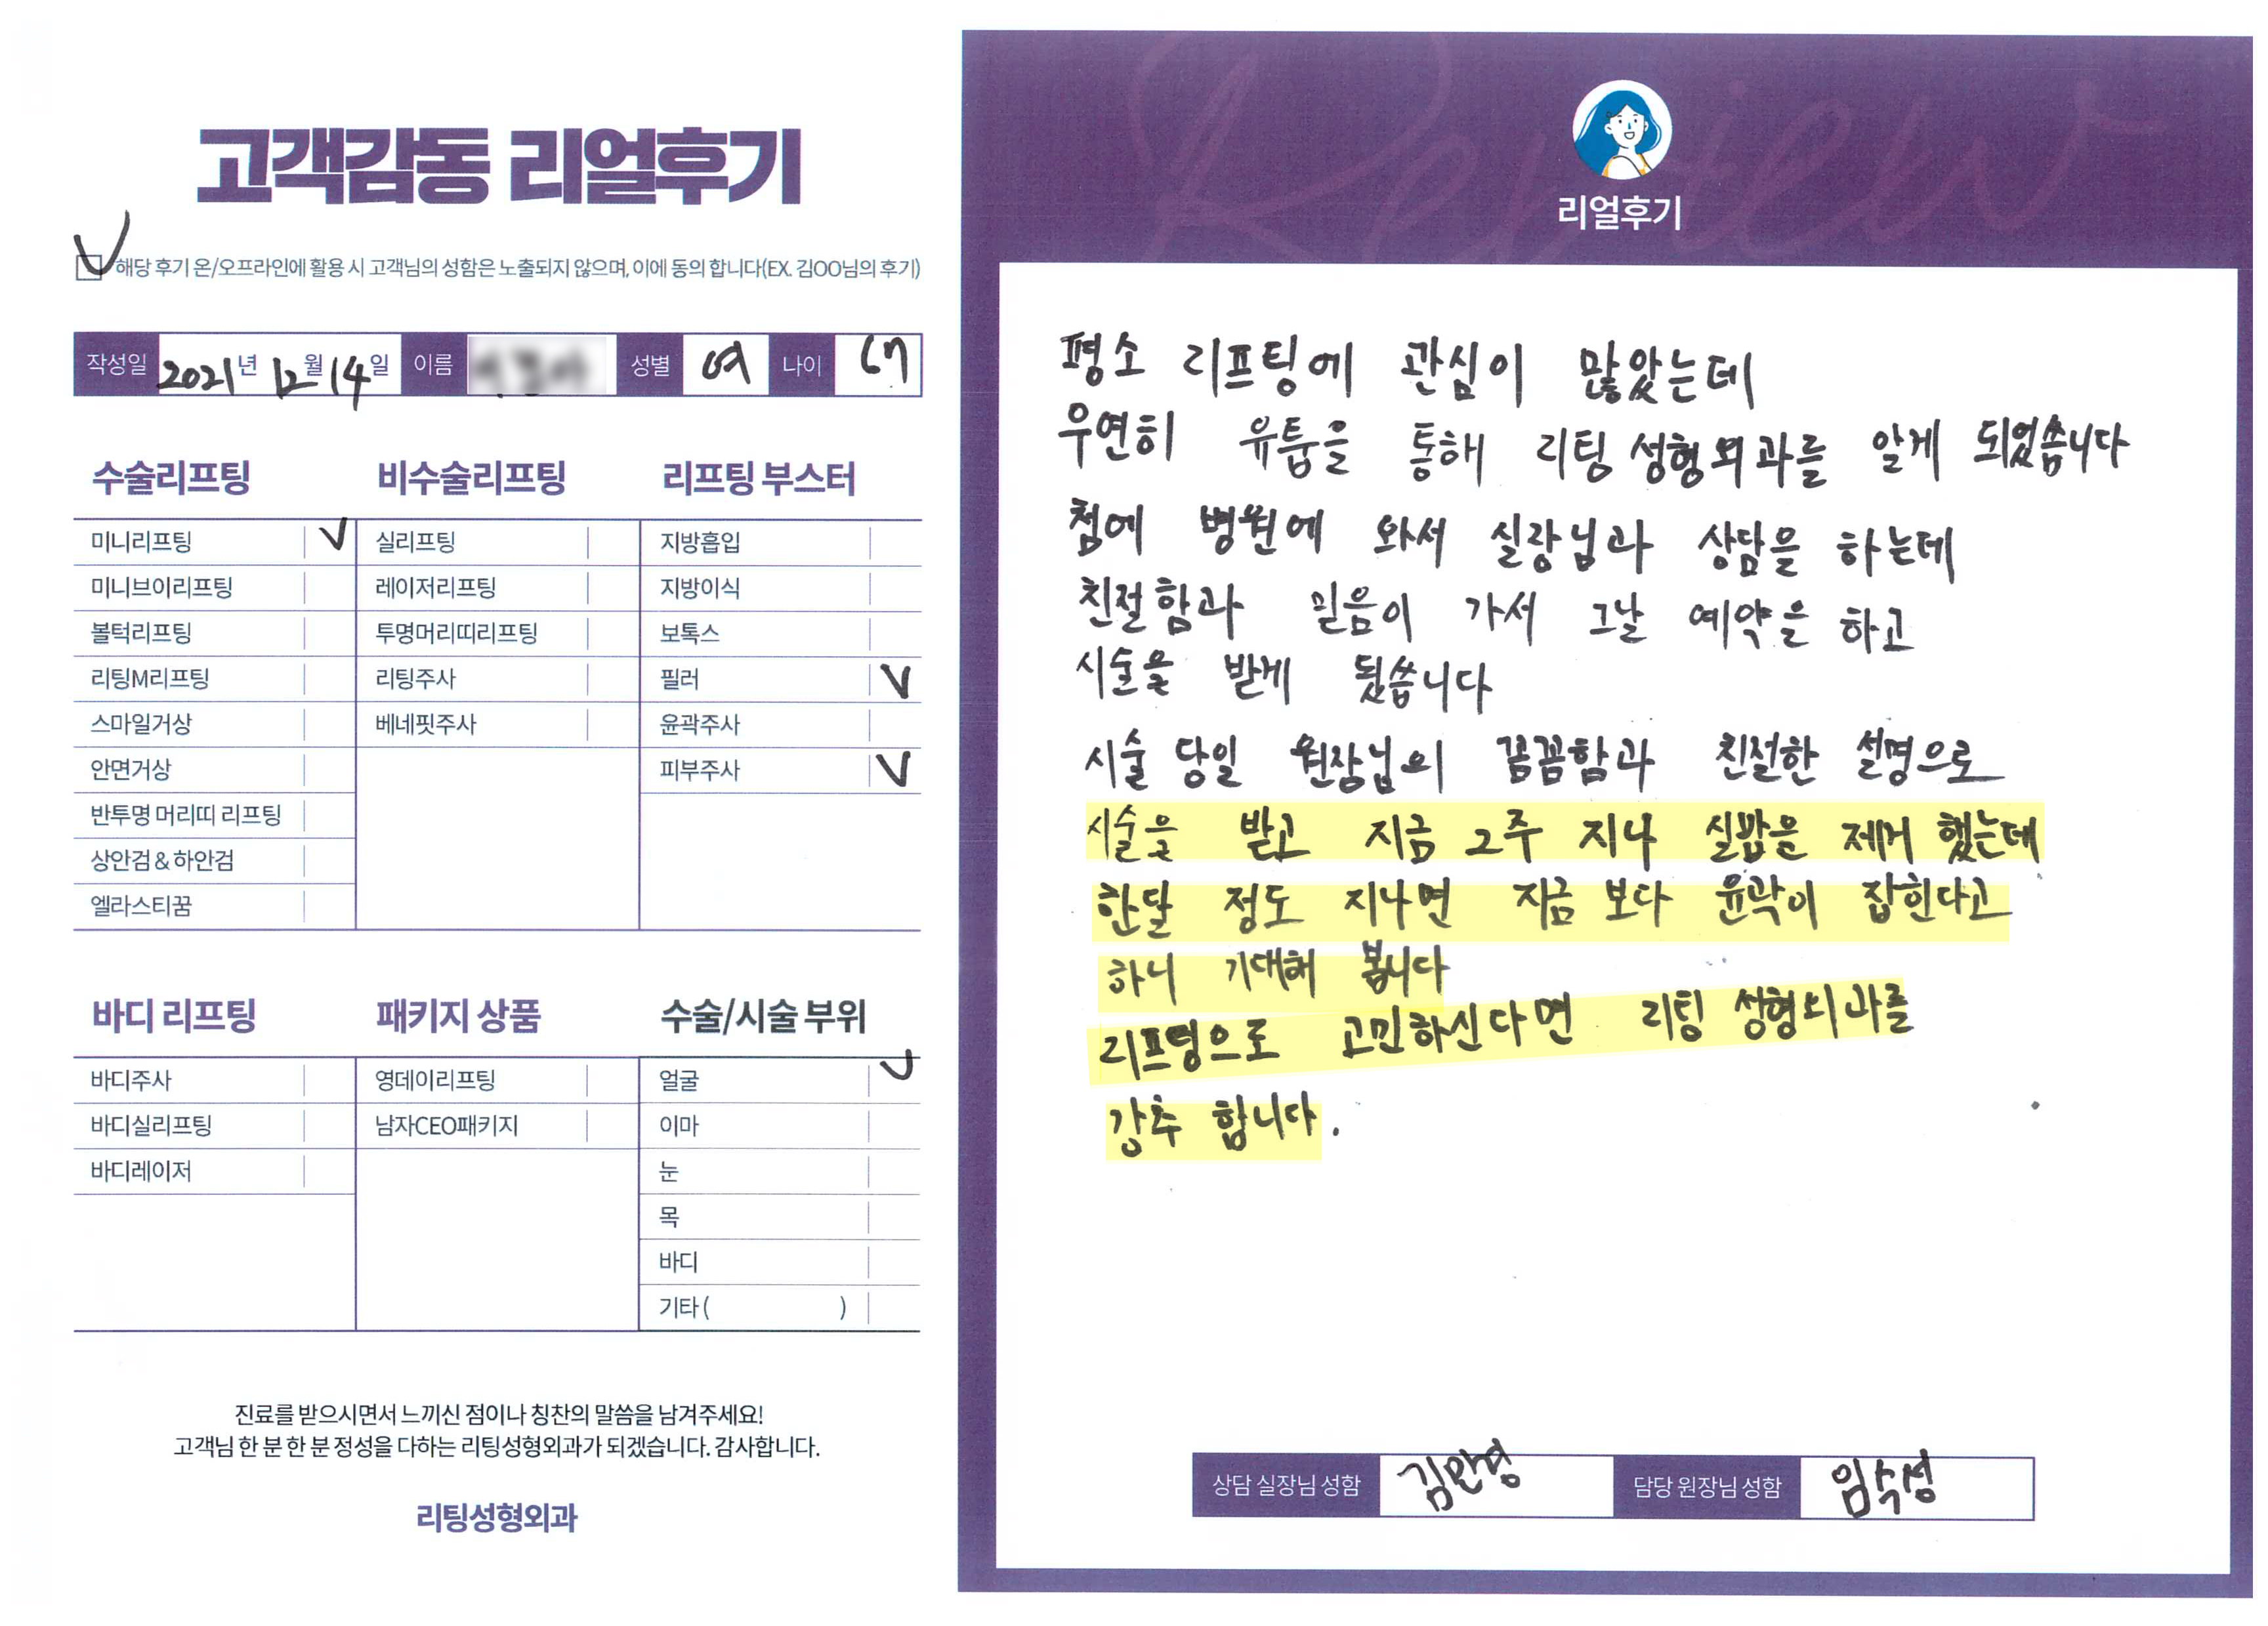 고객감동 리얼후기
해당 후기 온/오프라인에 활용 시 고객님의 성함은 노출되지 않으며, 이에 동의 합니다(EX. 김OO님의 후기)
작성일 2021년 12월 14일 이름 성별 여 나이 67
수술리프팅 비수술리프팅 리프팅 부스터
미니리프팅 실리프팅 지방흡입
미니브이리프팅 레이저리프팅 지방이식
볼턱리프팅 투명머리띠리프팅 보톡스
리팅M리프팅 리팅주사 필러
스마일거상 베네핏주사 윤곽주사
안면거상 피부주사
반투명 머리띠 리프팅
상안검 & 하안검
엘라스티꿈
바디 리프팅 패키지 상품 수술/시술 부위
바디주사 영데이리프팅 얼굴
바디실리프팅 남자CEO패키지 이마
바디레이저 눈
목
바디
기타 ( )
진료를 받으시면서 느끼신 점이나 칭찬의 말씀을 남겨주세요!
고객님 한 분 한 분 정성을 다하는 리팅성형외과가 되겠습니다. 감사합니다.
리팅성형외과
Review
리얼후기
평소 리프팅에 관심이 많았는데
우연히 유튭을 통해 리팅 성형외과를 알게 되었씁니다
첨에 병원에 와서 실장님과 상담을 하는데
친절함과 믿음이 가서 그날 예약을 하고
시술을 받게 됬씁니다
시술 당일 원장님의 꼼꼼함과 친절한 설명으로
시술을 받고 지금 2주 지나 실밥을 제거 했는데
한달 정도 지나면 지금 보다 윤곽이 잡힌다고
하니 기대해 봅니다
리프팅으로 고민하신다면 리팅 성형외과를
강추 합니다.
상담 실장님 성함 김민영 담당 원장님 성함 임수성